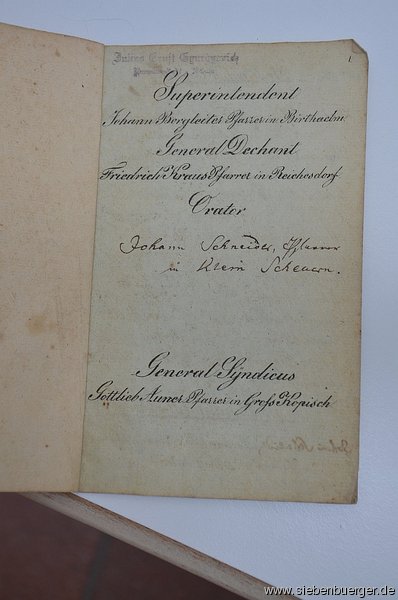 1
Julius Ernst Gyurgyevich
Superintendent
Johann Bergleiter Pfarrer in Birthaelm
General Dechant
Friedrich Kraus Pfarrer in Reichesdorf
Orater
Johann Schneider, Pfarrer
in Klein Scheuern.
General Syndicus
Gottlieb Auner Pfarrer in Gross Kopisch
www.siebenbuerger.de